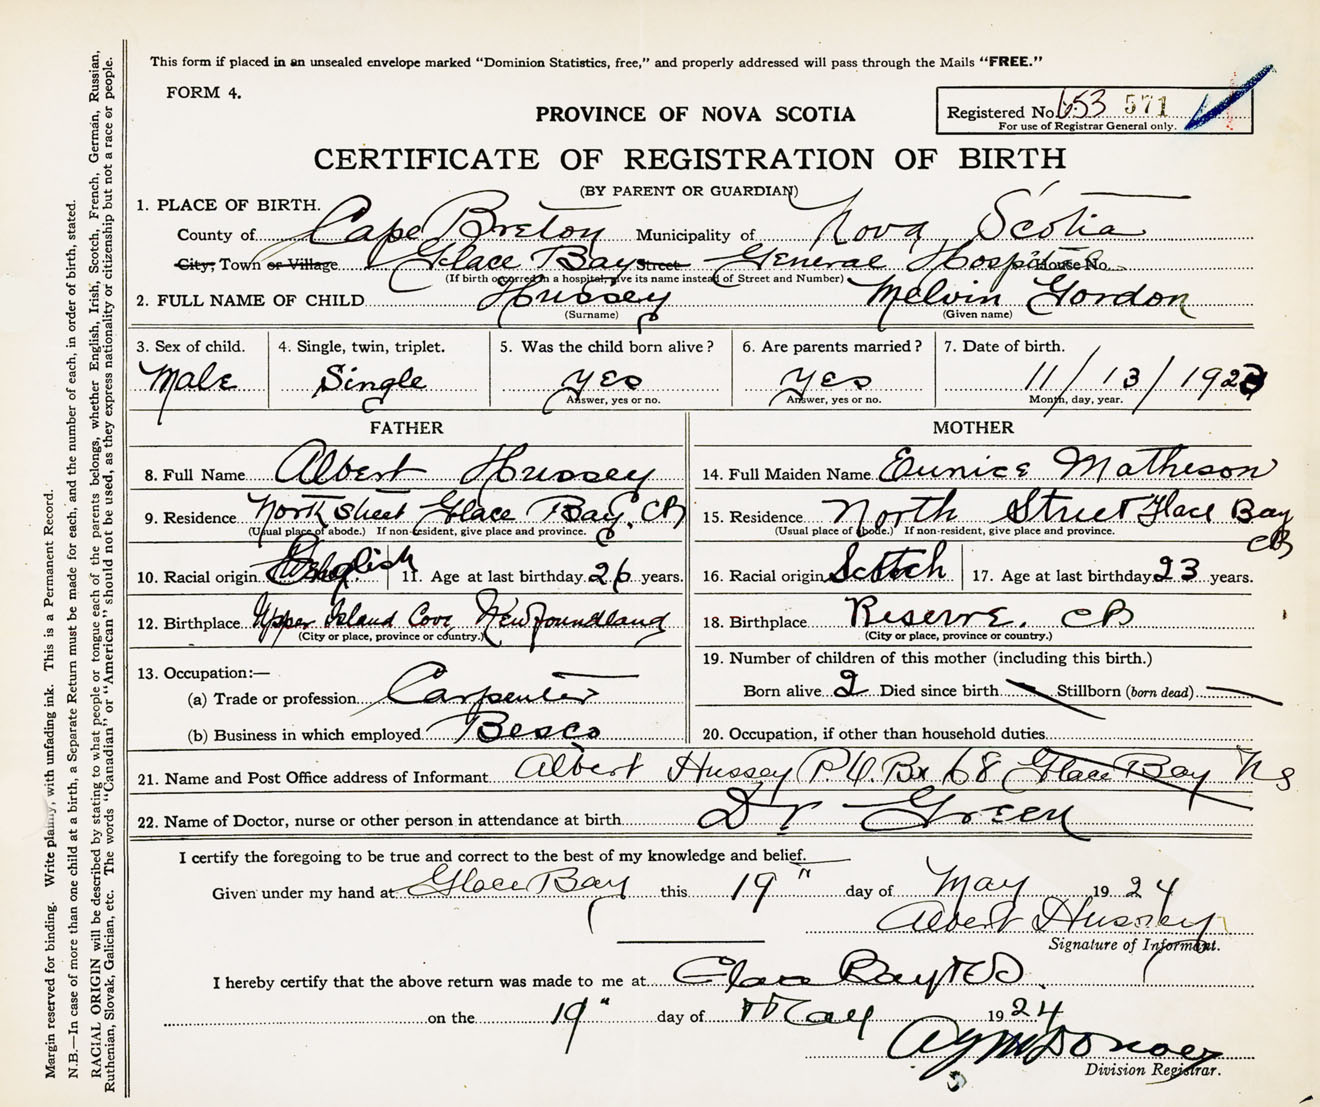 This form if placed in an unsealed envelope marked "Dominion Statistics, free," and properly addressed will pass through the Mails "FREE."
FORM 4.
PROVINCE OF NOVA SCOTIA
Registered No. 653 571
For use of Registrar General only.
CERTIFICATE OF REGISTRATION OF BIRTH
(BY PARENT OR GUARDIAN)
1. PLACE OF BIRTH.
County of Cape Breton Municipality of Nova Scotia
City; Town or Village Glace Bay Street General Hospital House No.
(If birth occurred in a hospital, give its name instead of Street and Number)
2. FULL NAME OF CHILD Hussey Melvin Gordon
(Surname) (Given name)
3. Sex of child. 4. Single, twin, triplet. 5. Was the child born alive? 6. Are parents married? 7. Date of birth.
Male Single yes yes 11/13/192
Answer, yes or no. Answer, yes or no. Month, day, year.
FATHER MOTHER
8. Full Name Albert Hussey 14. Full Maiden Name Eunice Matheson
9. Residence North Street Glace Bay, CB 15. Residence North Street Glace Bay
(Usual place of abode.) If non-resident, give place and province. (Usual place of abode.) If non-resident, give place and province.
CB
10. Racial origin English 11. Age at last birthday 26 years. 16. Racial origin Scotch 17. Age at last birthday 23 years.
12. Birthplace Upper Island Cove Newfoundland 18. Birthplace Reserve. CB
(City or place, province or country.) (City or place, province or country.)
13. Occupation:— 19. Number of children of this mother (including this birth.)
(a) Trade or profession Carpenter Born alive 2 Died since birth Stillborn (born dead)
(b) Business in which employed Besco 20. Occupation, if other than household duties
21. Name and Post Office address of Informant Albert Hussey P.O. Bx 68 Glace Bay NS
22. Name of Doctor, nurse or other person in attendance at birth Dr Green
I certify the foregoing to be true and correct to the best of my knowledge and belief.
Given under my hand at Glace Bay this 19" day of May 1924
Albert Hussey
Signature of Informant.
I hereby certify that the above return was made to me at Glace Bay
on the 19" day of May 1924
Division Registrar.
Margin reserved for binding. Write plainly, with unfading ink. This is a Permanent Record.
N.B.—In case of more than one child at a birth, a Separate Return must be made for each, and the number of each, in order of birth, stated.
RACIAL ORIGIN will be described by stating to what people or tongue each of the parents belongs, whether English, Irish, Scotch, French, German, Russian,
Ruthenian, Slovak, Galician, etc. The words "Canadian" or "American" should not be used, as they express nationality or citizenship but not a race or people.